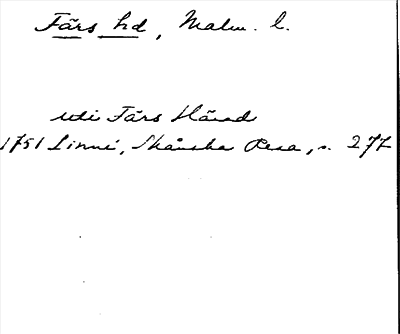 Färs hd, Malm. l.
uti Färs Härad
1751 Linné, Skånska Resa, s. 277